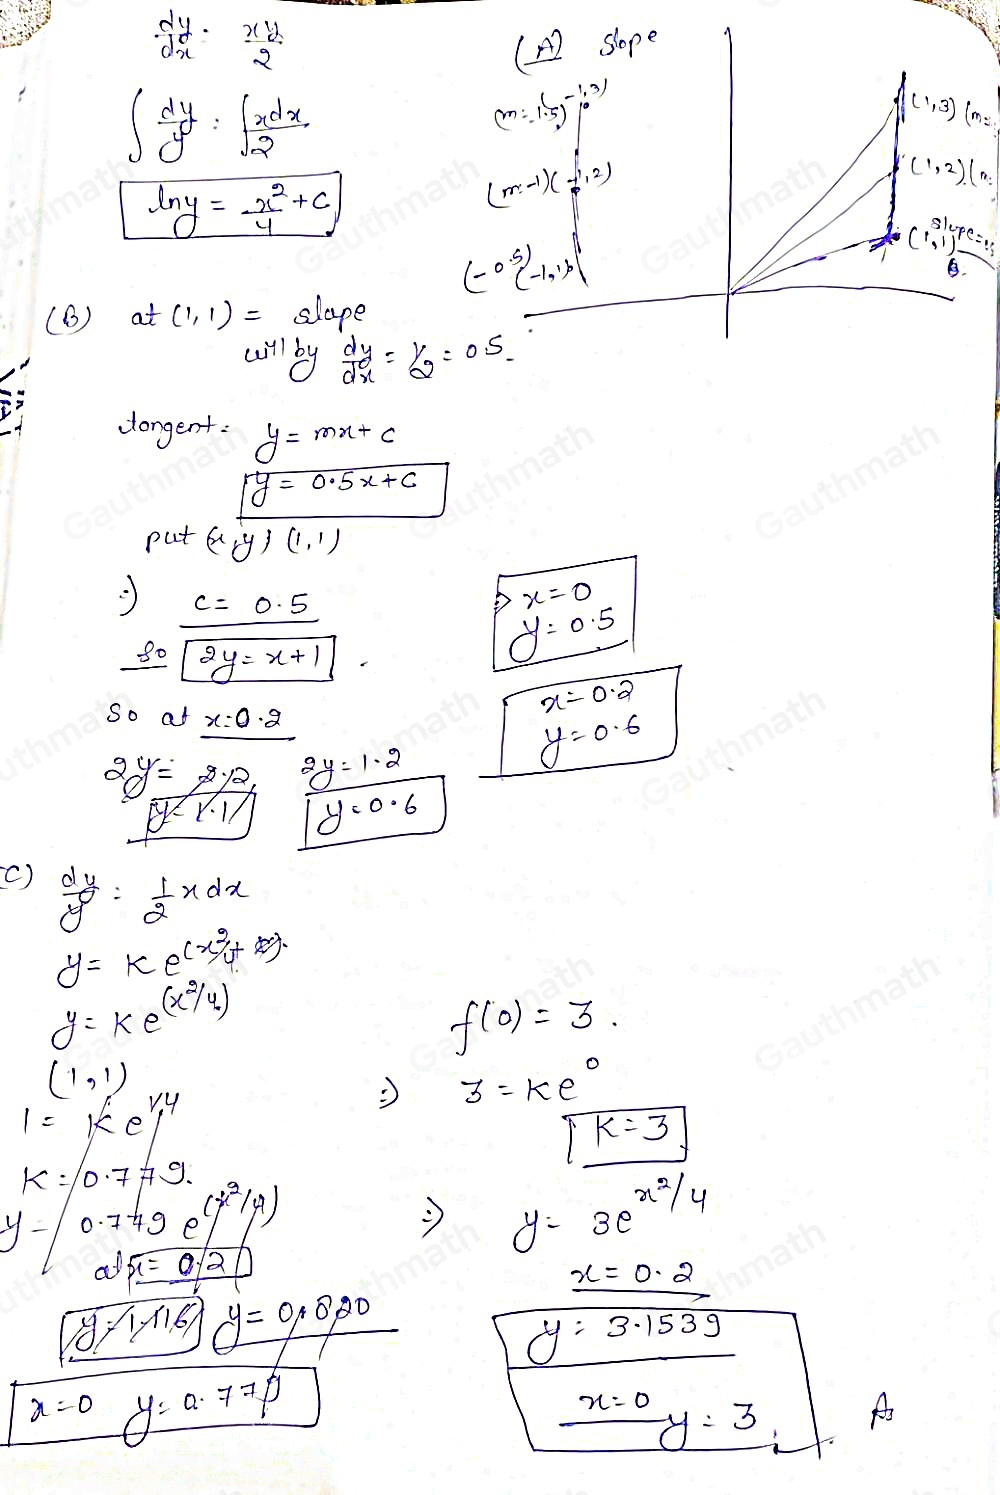 dy/dx = xy/2
∫ dy/y = ∫ xdx/2
lny = x²/4 + C
(A) Slope
(-1,3)
(m=-1.5)
(m=-1) (-1,2)
(-0.5)
(-1,1)
(1,3) (m=
(1,2) (m
(1,1) slope=
(B) at (1,1) = slope
will by dy/dx = 1/2 = 0.5
tangent = y = mx + c
y = 0.5x+C
put (x,y) (1,1)
∴) C = 0.5
so 2y = x+1
x=0
y=0.5
x=0.2
y=0.6
So at x=0.2
2y = 2.2 2y = 1.2
y=1.1 y=0.6
C) dy/y = 1/2 x dx
y = K e^(x²/4 +
y = K e^(x²/4)
(1,1)
1 = K e^1/4
K = 0.779.
y = 0.779 e^(x²/4)
at x = 0.2
y=1.116 y=0.820
x=0 y=0.779
f(0) = 3.
∴) 3 = Ke^0
K=3
∴) y = 3e^x²/4
x = 0.2
y = 3.1539
x=0 y = 3
Gauthmath